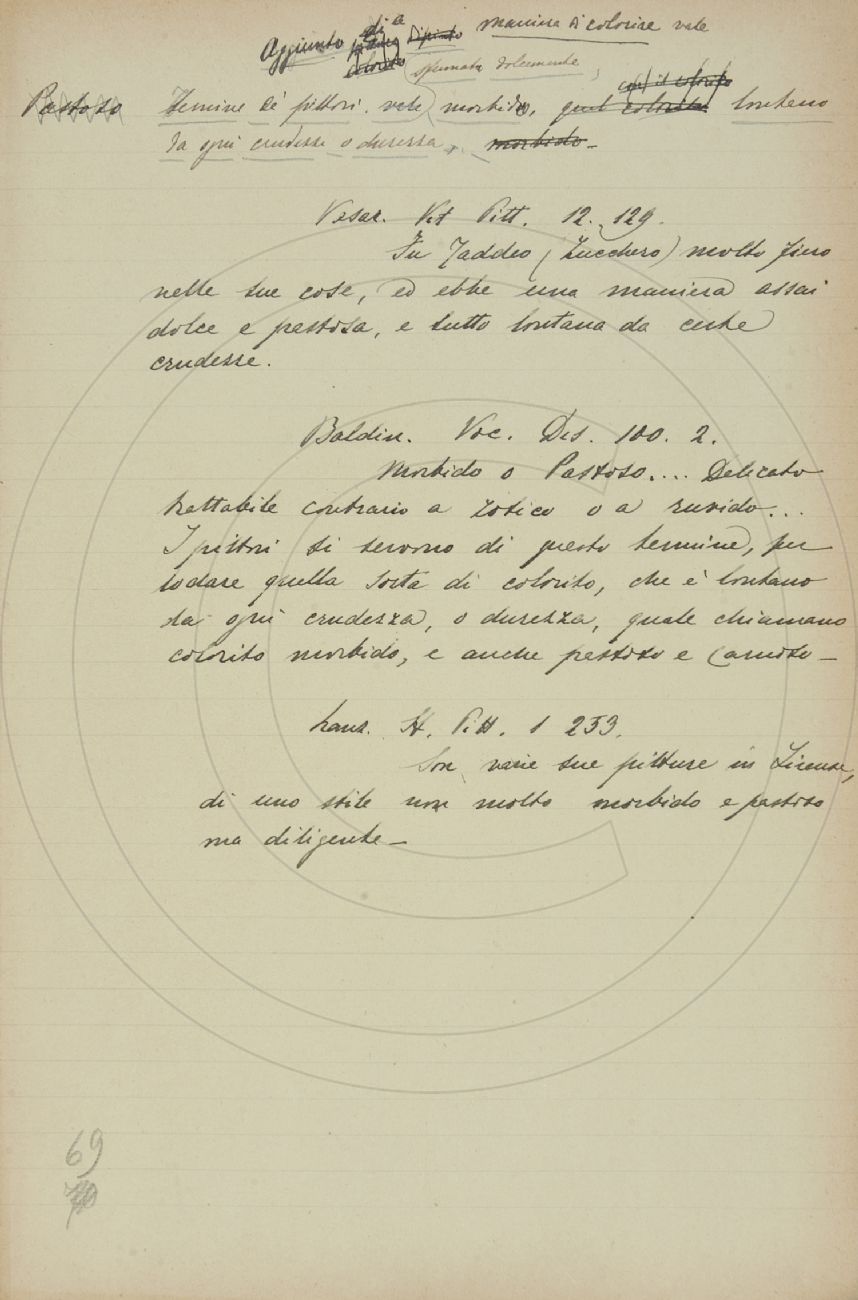 Aggiunto di a Dipinto maniera di colorire vale
colorito sfumata dolcemente,
così il colorito
Pastoso Termine de' pittori. vale morbido, quel colorito lontano
da ogni crudezze o durezza, morbido_
Vasar. Vit Pitt. 12. 129.
Fu Taddeo (Zucchero) molto fiero
nelle sue cose, ed ebbe una maniera assai
dolce e pastosa, e tutto lontana da certe
crudezze.
Baldin. Voc. Dis. 100. 2.
Morbido o Pastoso.... Delicato
trattabile contrario a zotico o a ruvido...
I pittori si servono di questo termine, per
lodare quella sorta di colorito, che è lontano
da ogni crudezza, o durezza, quale chiamano
colorito morbido, e anche pastoso e carnoso_
Lanz. St. Pitt. 1 253.
Son varie sue pitture in Firenze,
di uno stile non molto morbido e pastoso
ma diligente_
69